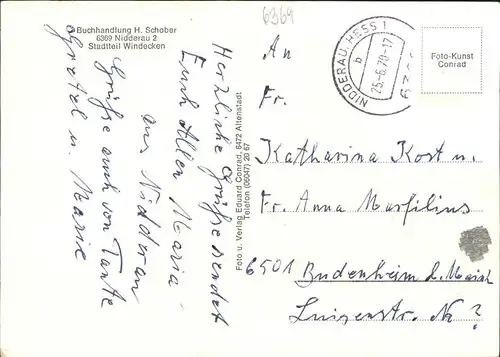 6369
Buchhandlung H. Schober
6369 Nidderau 2
Stadtteil Windecken
Herzliche Grüße sendet
Euch Allen Maria
aus Nidderau
Grüße auch von Tante
Gretel u. Marie
Foto u. Verlag Eduard Conrad, 6472 Altenstadt
Telefon (06047) 20 67
NIDDERAU, HESS 1
b
25.-6.70-17
6369
Foto-Kunst
Conrad
An
Fr.
Katharina Kost u.
Fr. Anna Marfilius
6501 Budenheim b. Mainz
Luisenstr. N ?